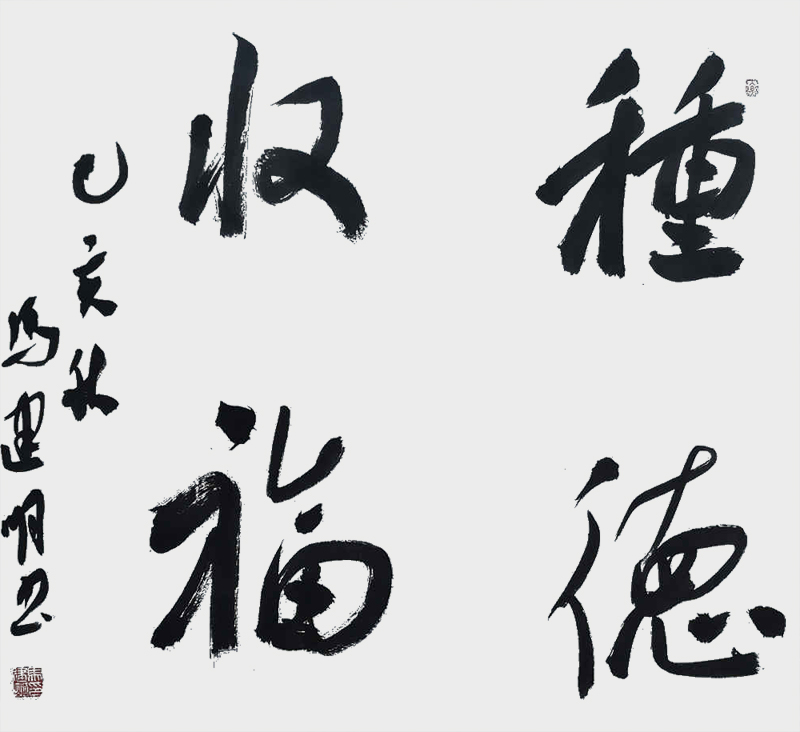 種德
收福
己亥秋
馬建明书